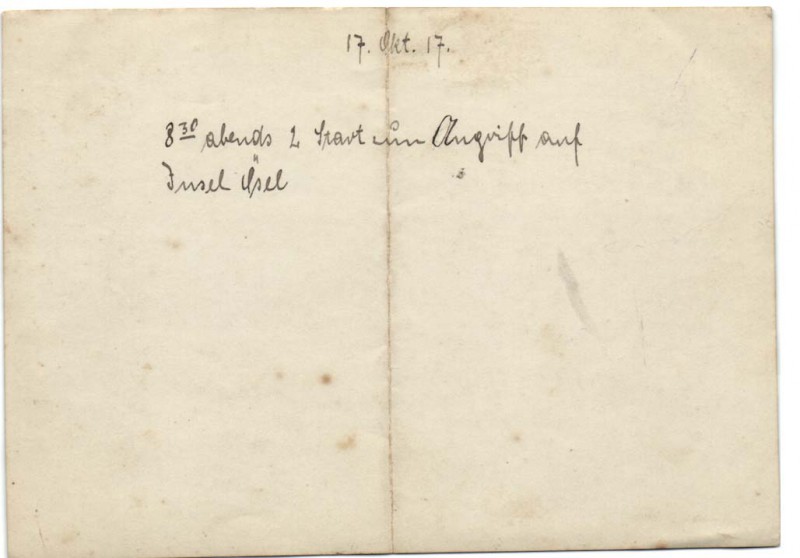 17. Okt. 17.
8³⁰ abends 2 Start zum Angriff auf
Insel Ösel